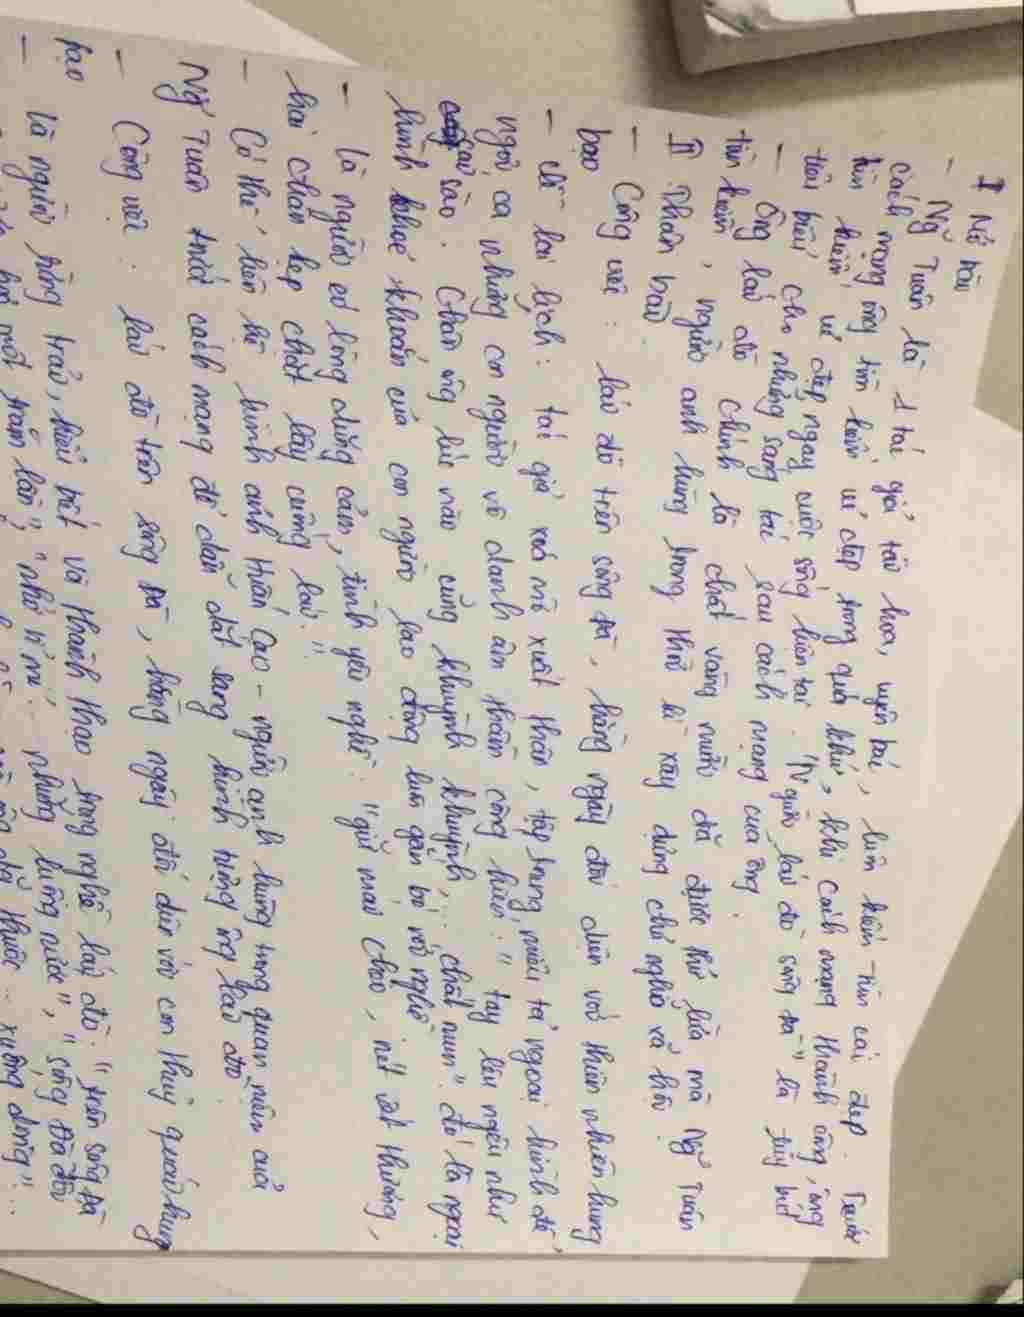 I Mở bài
- Ng̃ Tuân là 1 tác giả tài hoa, uyên bác, luôn kiếm tìm cái đẹp. Trước
cách mạng ông tìm kiếm vẻ đẹp trong quá khứ, khi cách mạng thành công, ông
tìm kiếm vẻ đẹp ngay cuộc sống hiện tại. "Người lái đò sông Đà" là tùy bút
tiêu biểu cho những sáng tác sau cách mạng của ông.
- Ông lái đò chính là chất vàng mười đã được thử lửa mà Ng̃ Tuân
tìm kiếm, người anh hùng trong thời kì xây dựng chủ nghĩa xã hội.
II Thân bài
- Công việc: lái đò trên sông Đà, hàng ngày đối diện với thiên nhiên hung
bạo
- Về lai lịch: tác giả xoá mờ xuất thân, tập trung miêu tả ngoại hình để
ngợi ca những con người vô danh âm thầm cống hiến: "tay lêu nghêu như
sào. Chân ông lúc nào cũng khuỳnh khuỳnh,... chất mun". đó là ngoại
hình khoẻ khoắn của con người lao động luôn gắn bó với nghề
- là người có lòng dũng cảm, tình yêu nghề: "giữ mái chèo, nét vết thương,
hai chân kẹp chặt lấy cuống lái."
- Có thể liên hệ hình ảnh Huấn Cao - người anh hùng trong quan niệm của
Ng̃ Tuân trước cách mạng để dẫn dắt sang hình tượng ông lái đò.
- Công việc: lái đò trên sông Đà, hàng ngày đối diện với con thuỷ quái hung
bạo
- là người từng trải, hiểu biết và thành thạo trong nghề lái đò: "trên sông Đà
trăm lần", "nhớ tỉ mỉ... những luồng nước", "sông Đà đối
đã thuộc... xuống dòng"...